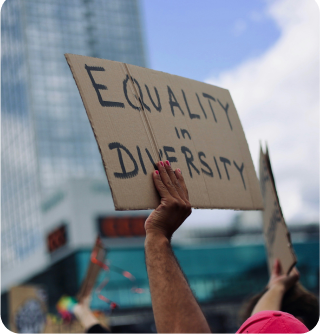 EQUALITY
in
DIVERSITY